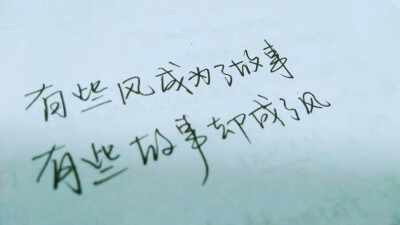 有些风成为了故事
有些故事却成了风